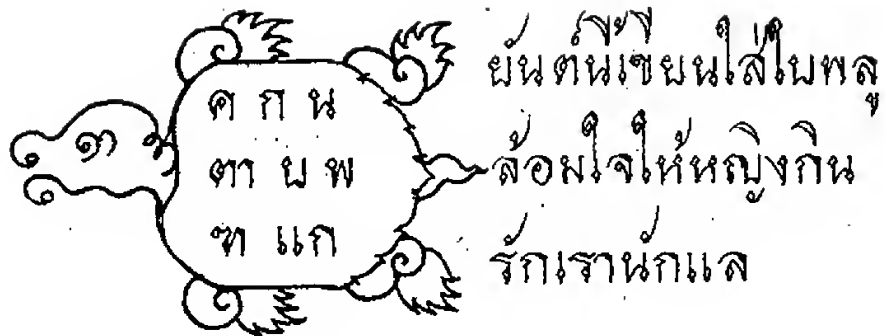 ค ก น
ตา ย พ
ฑา แก
ยันต์นี้เขียนใส่ใบพลู
ล้อมใจให้หญิงกิน
รักเรานักแล